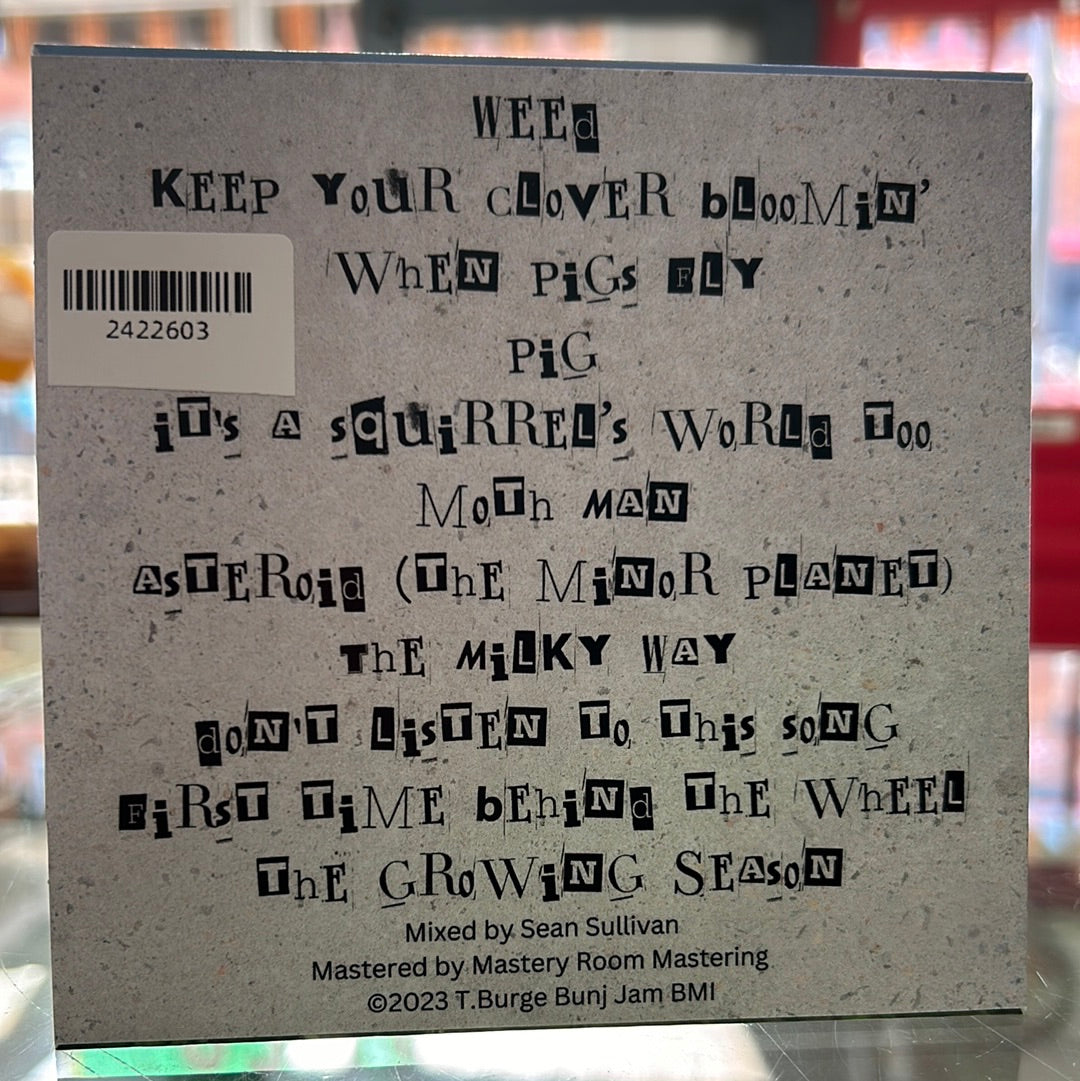 WEEd
KEEP YouR cLoVER bLooMiN'
WhEN PiGs FLY
2422603
PiG
iT's A squiRREL's WoRLd Too
MoTh MAN
AsTERoid (ThE MiNoR PLANET)
ThE MiLKY WAY
doN'T LisTEN To This soNG
FiRsT TiME bEhiNd ThE WhEEL
ThE GRoWiNG SEAsoN
Mixed by Sean Sullivan
Mastered by Mastery Room Mastering
©2023 T.Burge Bunj Jam BMI